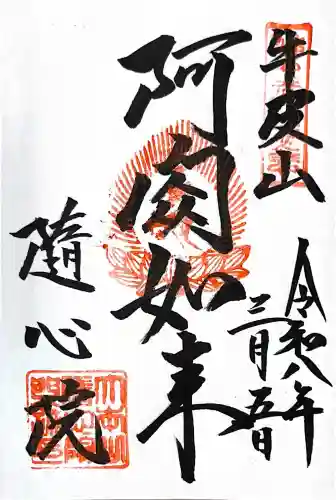 牛皮山
令和八年
三月五日
阿閦如来
隨心院